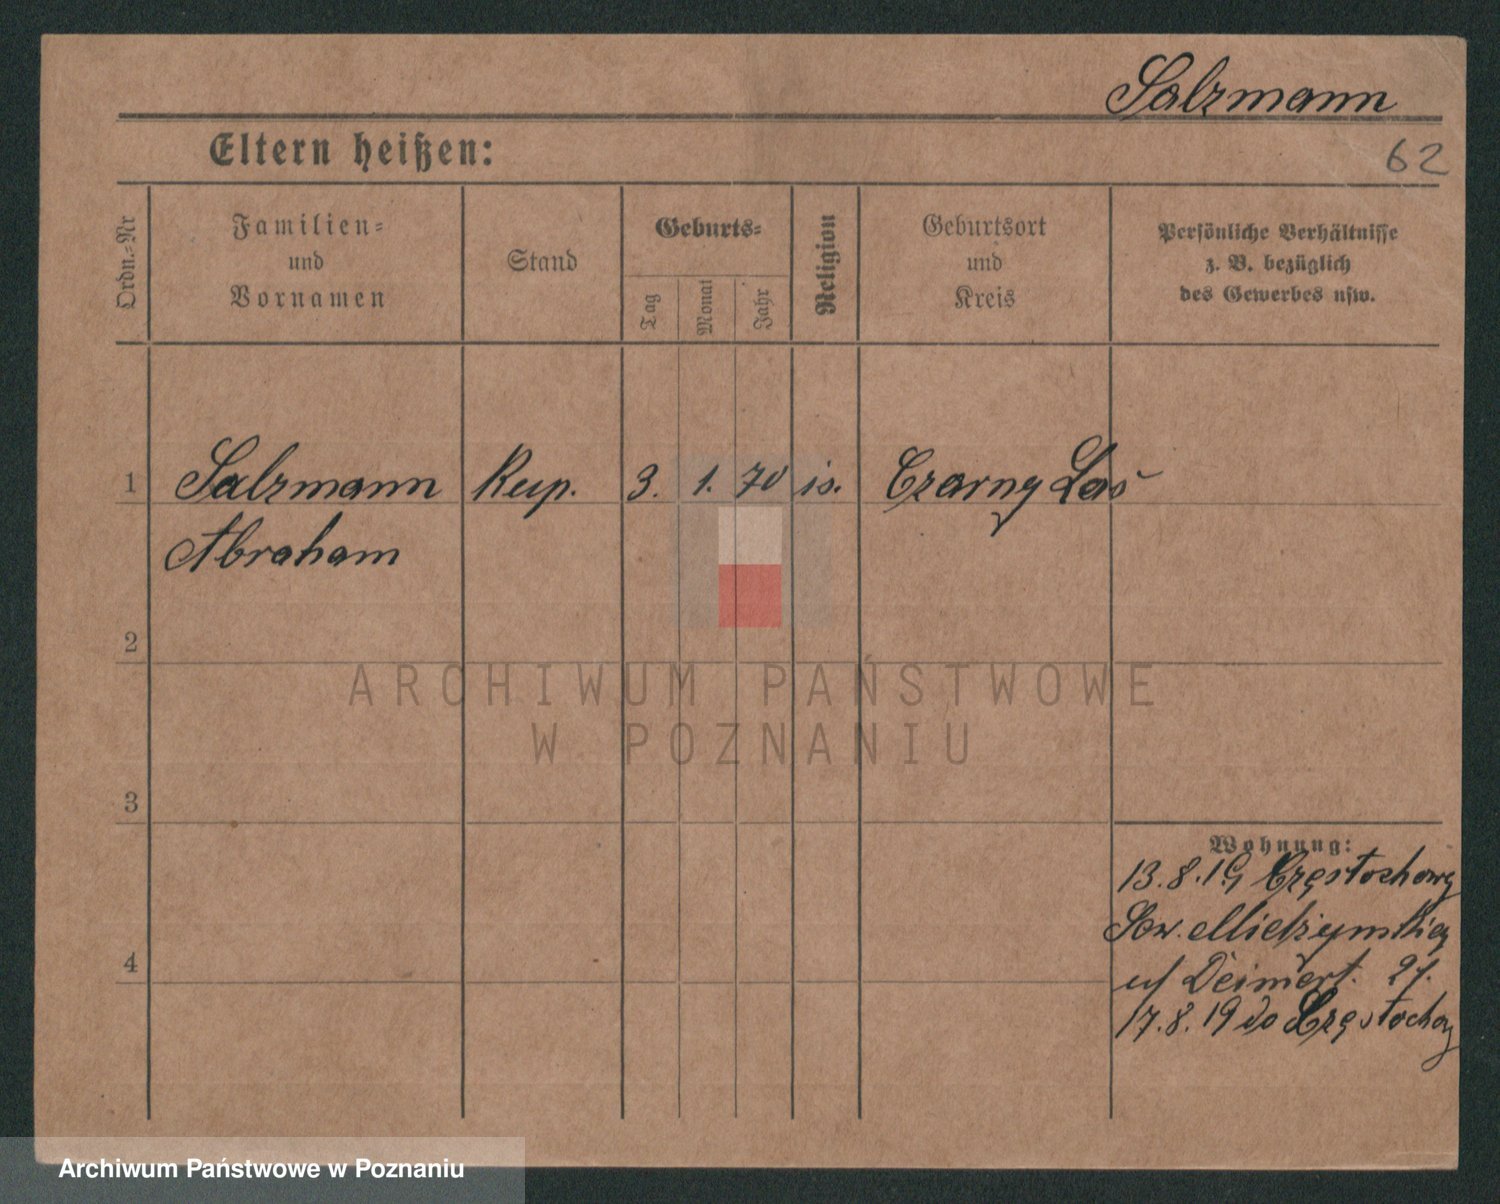 Salzmann
Eltern heißen:
62
Ordn.-Nr
Familien-
und
Vornamen
Stand
Geburts-
Tag
Monat
Jahr
Religion
Geburtsort
und
Kreis
Persönliche Verhältnisse
z. B. bezüglich
des Gewerbes usw.
1
Salzmann Kup. 3. 1. 70 is. Czarny Las
Abraham
2
ARCHIWUM PAŃSTWOWE
W POZNANIU
3
Wohnung:
13.8.19 Częstochowy
Sew.
4
u/ 21.
17.8.19 do Częstochowy
Archiwum Państwowe w Poznaniu